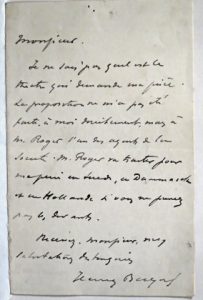 Monsieur.
Je ne sais pas quel est le
théâtre qui demande ma pièce.
La proposition ne m'a pas été
faite, à moi directement, mais à
M. Roger l'un des agents de la
Société. M. Roger va traiter pour
en Suède, en Danemark
et en Hollande
Recevez, Monsieur, mes
salutations distinguées
Henry Becque